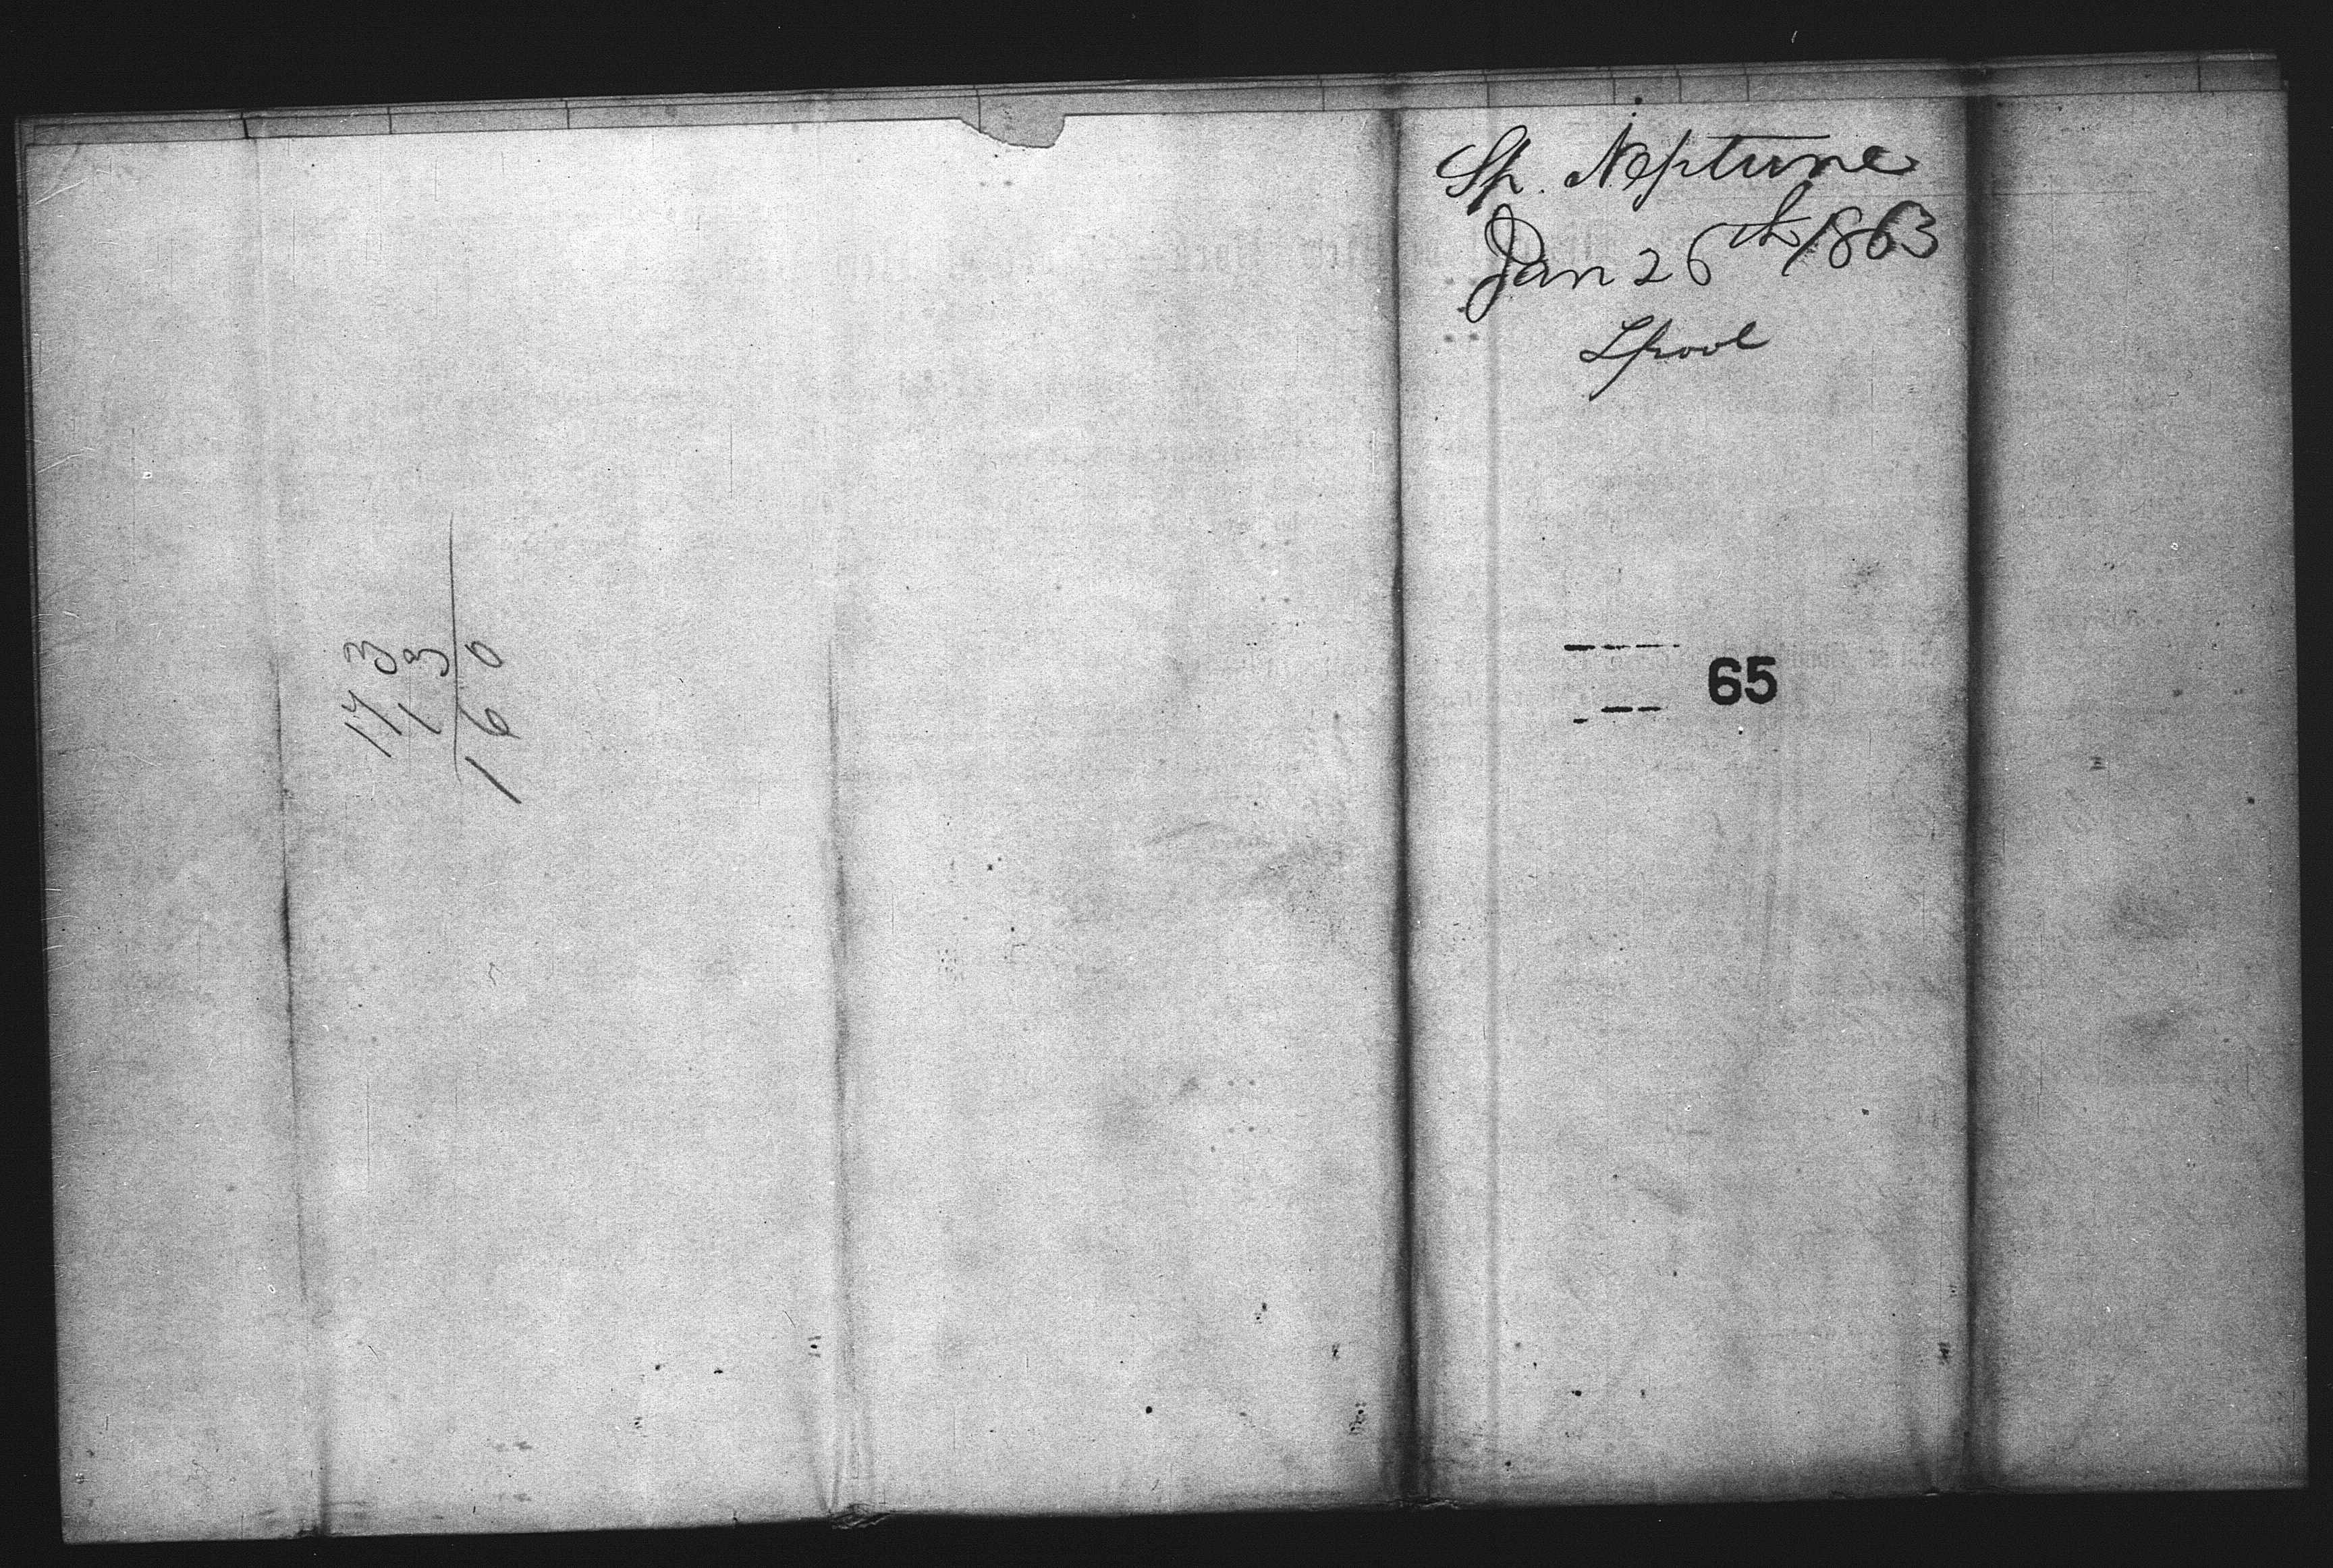 Sh. Neptune
Jan 26th 1863
Lpool
65
173
13
160